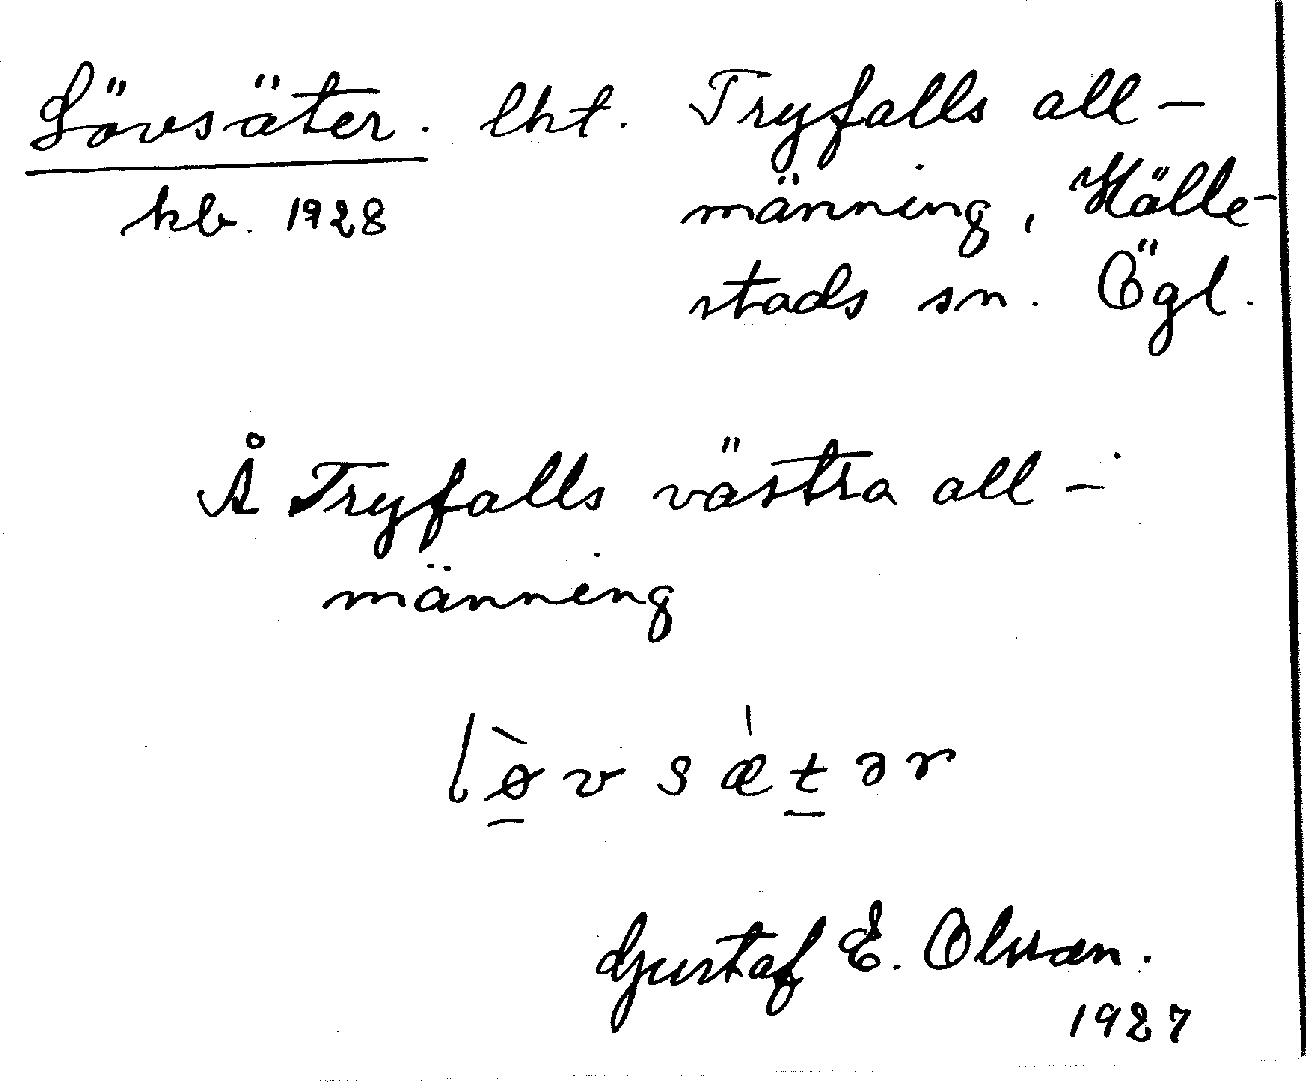 Lövsäter. lht. Tryfalls all-
kb. 1928 männing, Hälle-
stads sn. Ögl.
Å Tryfalls västra all-
männing
lø̠̀vsæ̍t̠ər
Gustaf E. Olsson.
1927